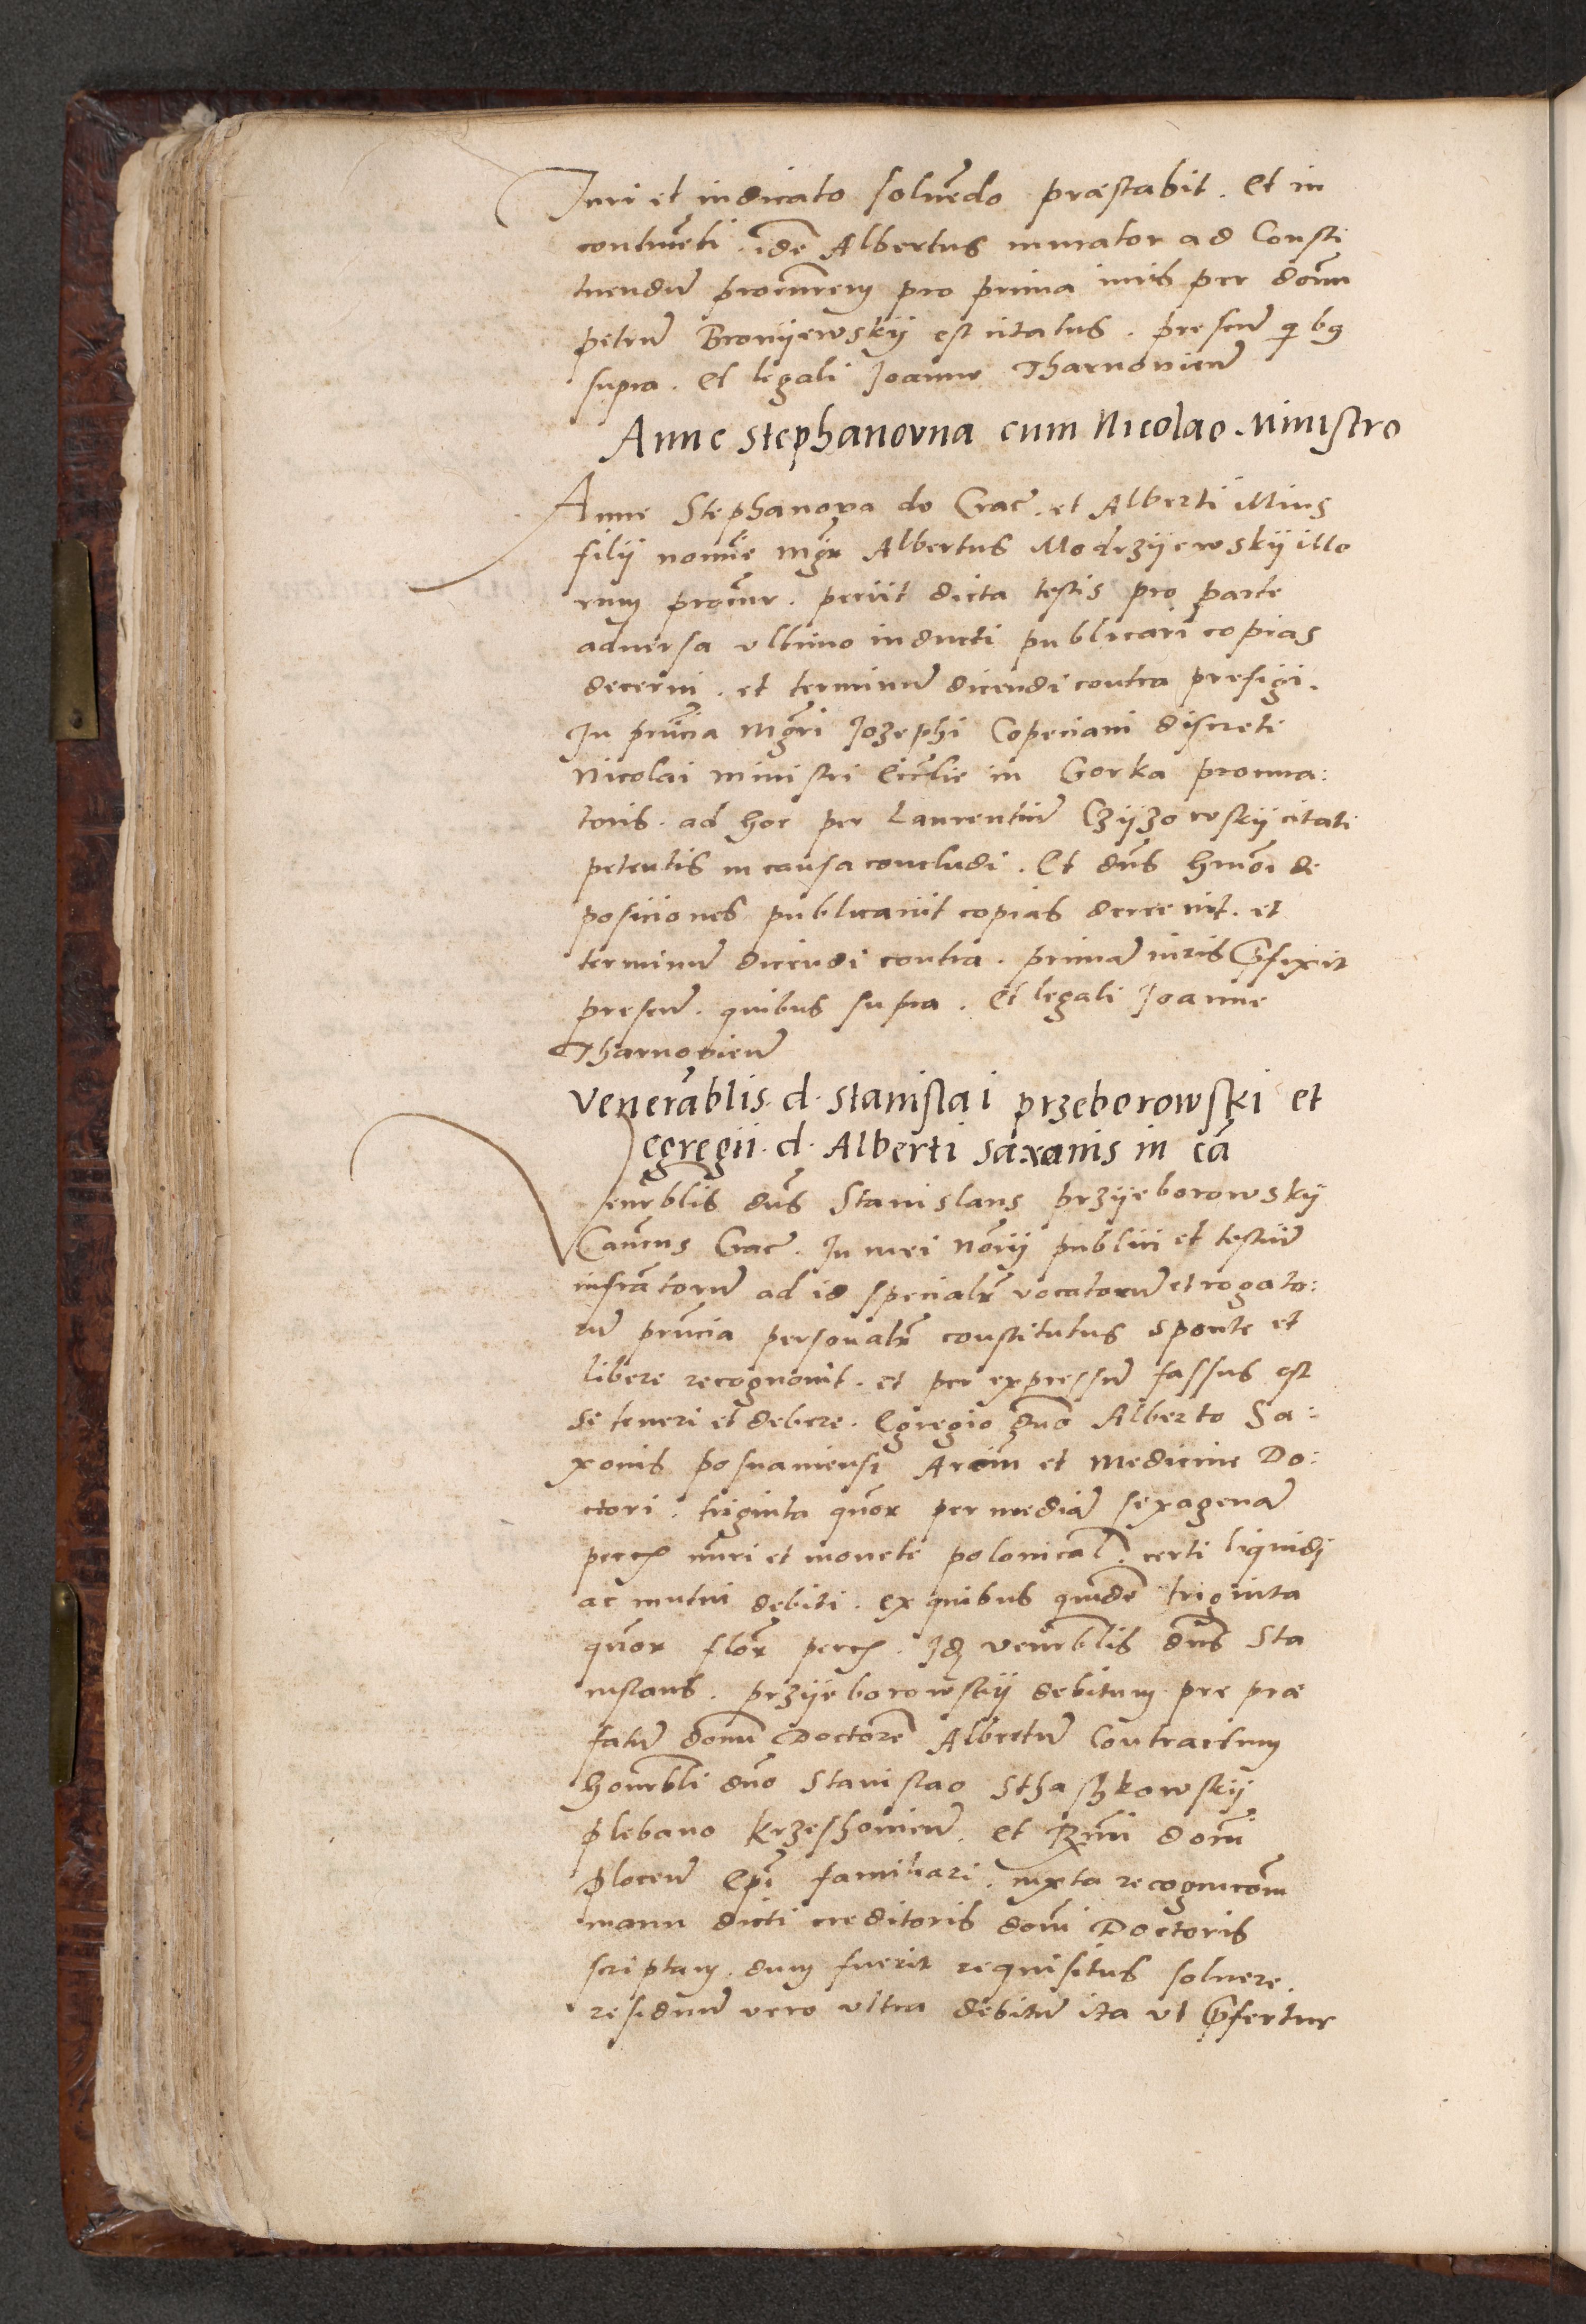 Juri et iudicato soluēdo præstabit. Et in
continēti. idē Albertus murator ad Consti
tuendū procurēm pro prima iuris per dōm
petrū Bronyewskij est citatus. presen̄ quibus
supra. Et legali Joanne Tharnovien̄
Anne Stephanovna cum Nicolao Ministro
Anne Stephanova de Crac̄. et Alberti illius
filij nomīe mḡr Albertus Modrzyewskij illo
rum procur̄. petiit dicta testis pro parte
adversa ultimo inducti publicari copias
decerni. et terminū dicendi contra prefigi.
In pn̄cia Mgr̄i Jozephi Copeciani discreti
Nicolai ministri Eccl̄ie in Gorka procura:
toris. ad hoc per Laurentiū Czyzowskij citati
petentis in causa concludi. Et dn̄s hmōi de
posiciones publicavit copias decrevit. et
terminū dicendi contra. primā iuris p̄fixit
presen̄. quibus supra. Et legali Joanne
Tharnovien̄
Venerablis. d. Stanislai przeborowski et
egregii. d. Alberti Saxonis in cā
Venerblis dn̄s Stanislaus przyeborowsky
Can̄cus Crac̄. In mei nōrij publici et testiū
infrāctorū ad id specialr̄ vocatorū et rogato:
rū pn̄cia personalr̄ constitutus sponte et
libere recognovit. et per expressū fassus est
se teneri et debere. Egregio dn̄o Alberto Sa:
xonis posnaniensi Arciū et Medicine Do:
ctori. triginta quōr per mediā sexagenā
nūri et monete polonical̄. certi liquidi
ac mutui debiti. ex quibus quidē triginta
quōr flor̄ Idē venerblis dn̄s Sta
nislaus. przyeborowskij debitum per præ
fatū dōnū Doctorē Albertū Contractum
honorbli dn̄o Stanislao Sthaszkowskij
plebano Krzeshovien̄. et Rmī dōmi
plocen̄ Ep̄i familiari. iuxta recognicōm
manu dicti creditoris dōmi Doctoris
scriptam. dum fuerit requisitus solvere.
residuū vero ultra debitū ita ut p̄fertur